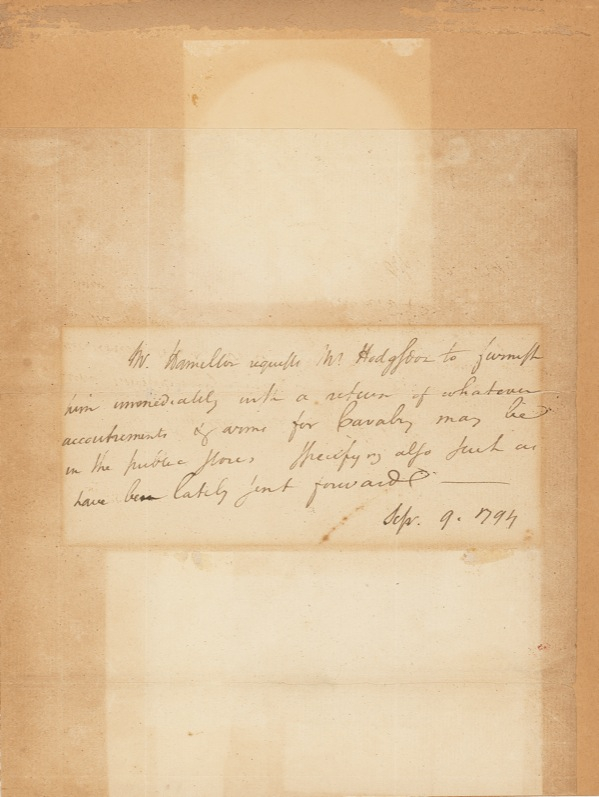 Mr. Hamilton requests Mr Hodgsdon to furnish
him immediately with a return of whatever
accoutrements & arms for Cavalry may be
in the public stores Specifying also such as
have been lately sent forward —
Sepr. 9. 1794